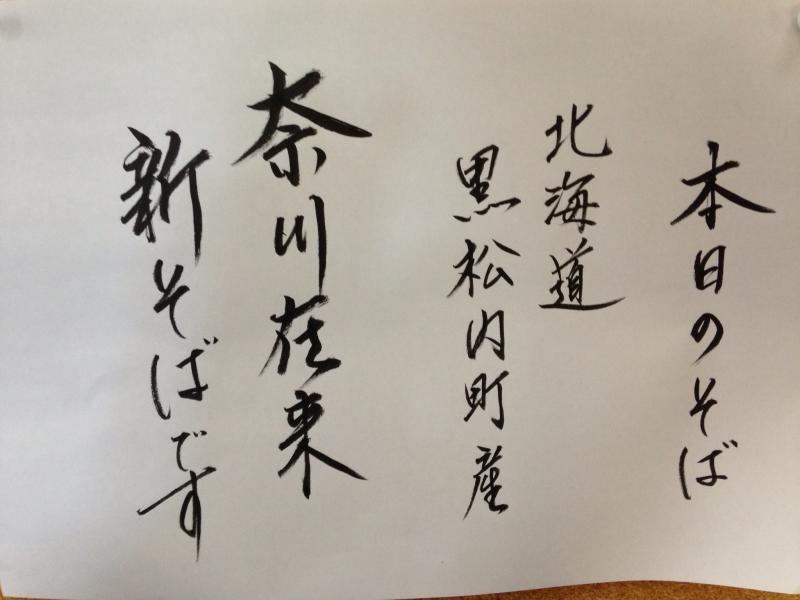 本日のそば
北海道
黒松内町産
奈川在来
新そばです